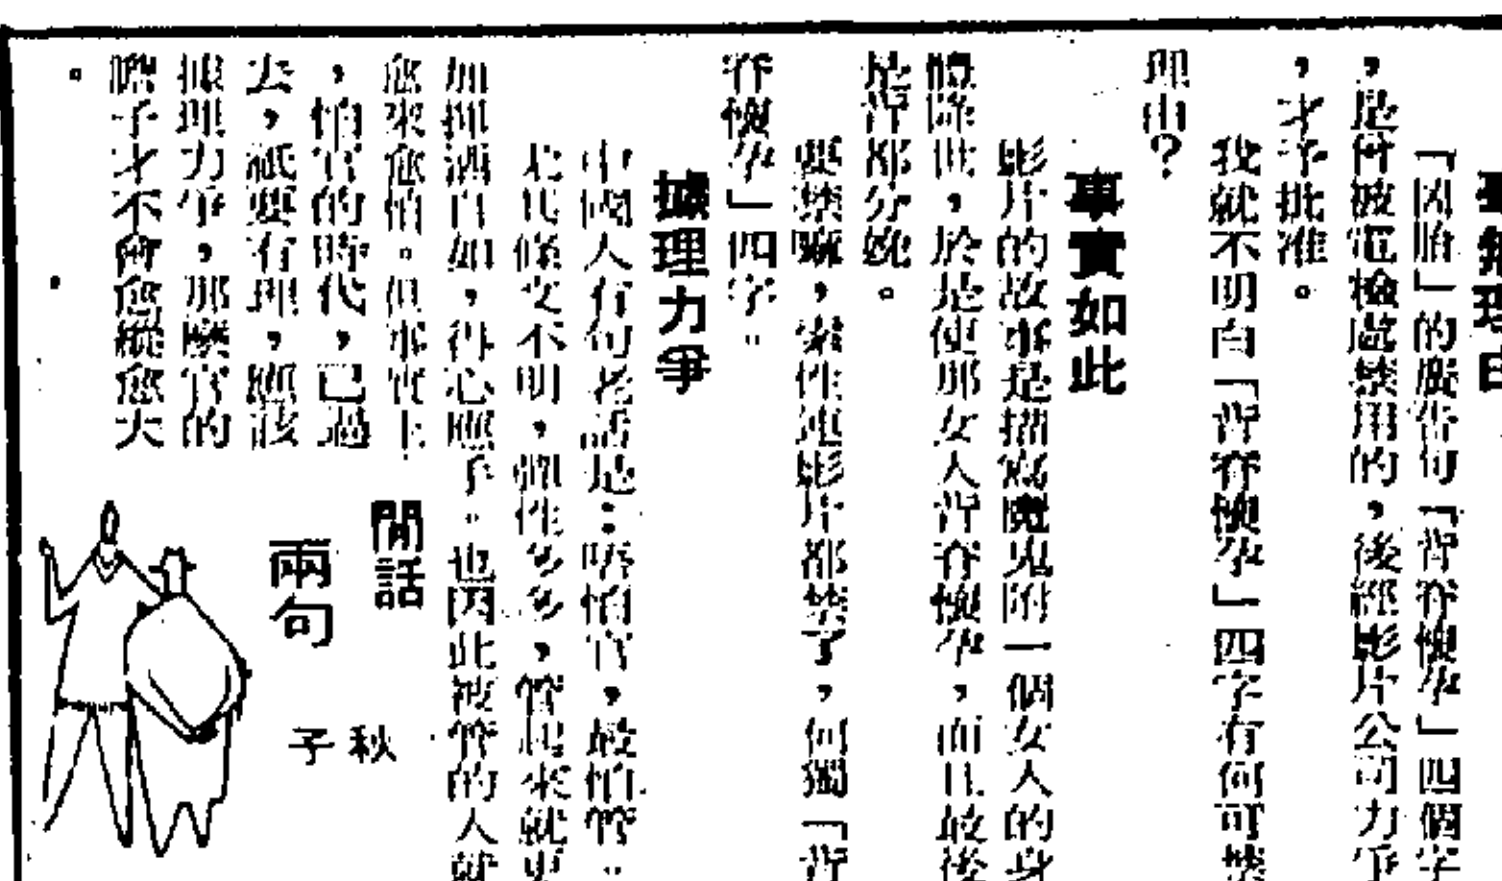 「凶胎」的廣告句「背脊懷孕」四個字
，是曾被電檢處禁用的，後經影片公司力爭
，才予批准。
我就不明白「背脊懷孕」四字有何可禁
理由？
事實如此
影片的故事是描寫魔鬼附一個女人的身
體降世，於是使那女人背脊懷孕，而且最後
是背部分娩。
要禁嘛，索性連影片都禁了，何獨「背
脊懷孕」四字。
據理力爭
中國人有句老話是：唔怕官，最怕管。
尤其條文不明，彈性多多，管起來就更
加揮洒自如，得心應手。也因此被管的人就
愈來愈怕。但事實上
，怕官的時代，已過
去，祇要有理，應該
據理力爭，那麼官的
膽子才不會愈縱愈大
。
閒話
兩句
秋子